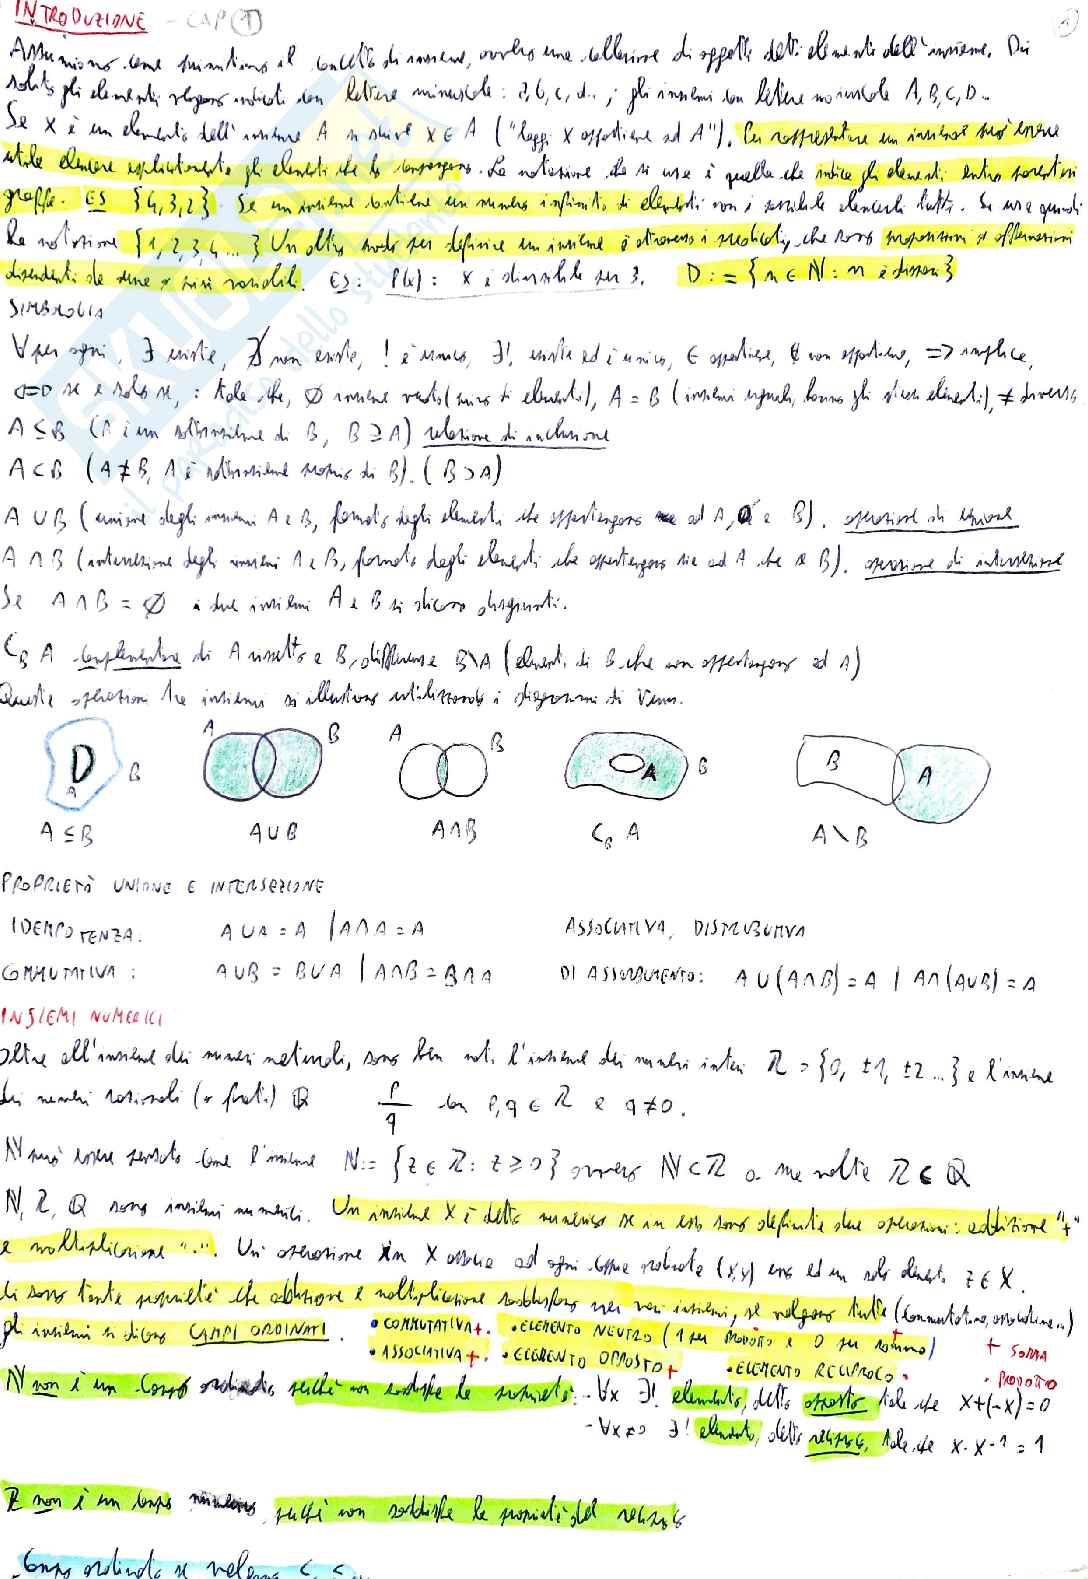 INTRODUZIONE - CAP ①
Assumiamo come primitivo il concetto di insieme, ovvero una collezione di oggetti detti elementi dell'insieme. Di
solito gli elementi vengono indicati con lettere minuscole: a, b, c, d.. ; gli insiemi con lettere maiuscole A, B, C, D...
Se x è un elemento dell'insieme A si scrive x ∈ A ("leggi x appartiene ad A"). Per rappresentare un insieme può essere
utile elencare esplicitamente gli elementi che lo compongono. La notazione che si usa è quella che indica gli elementi entro parentesi
graffe. ES {4,3,2}. Se un insieme contiene un numero infinito di elementi non è possibile elencarli tutti. Si usa quindi
la notazione {1,2,3,4...} Un altro modo per definire un insieme è attraverso i predicati, che sono proposizioni o affermazioni
dipendenti da una o più variabili. ES: P(x): x è divisibile per 3. D := {n ∈ ℕ : n è dispari}
SIMBOLOGIA
∀ per ogni, ∃ esiste, ∄ non esiste, ! è unico, ∃! esiste ed è unico, ∈ appartiene, ∉ non appartiene, => implica,
<=> se e solo se, : tale che, ∅ insieme vuoto (privo di elementi), A = B (insiemi uguali, hanno gli stessi elementi), ≠ diverso
A ⊆ B (A è un sottoinsieme di B, B ⊇ A) relazione di inclusione
A ⊂ B (A ≠ B, A è sottoinsieme proprio di B). (B ⊃ A)
A ∪ B (unione degli insiemi A e B, formato dagli elementi che appartengono ad A, o a B). operazione di unione
A ∩ B (intersezione degli insiemi A e B, formato dagli elementi che appartengono sia ad A che a B). operazione di intersezione
Se A ∩ B = ∅ i due insiemi A e B si dicono disgiunti.
C_B A complementare di A rispetto a B, differenza B\A (elementi di B che non appartengono ad A)
Queste operazioni tra insiemi si illustrano utilizzando i diagrammi di Venn.
A B A B A B A B B A
A ⊆ B A ∪ B A ∩ B C_B A A \ B
PROPRIETÀ UNIONE E INTERSEZIONE
IDEMPOTENZA: A ∪ A = A | A ∩ A = A ASSOCIATIVA, DISTRIBUTIVA
COMMUTATIVA: A ∪ B = B ∪ A | A ∩ B = B ∩ A DI ASSORBIMENTO: A ∪ (A ∩ B) = A | A ∩ (A ∪ B) = A
INSIEMI NUMERICI
Oltre all'insieme dei numeri naturali, sono ben noti l'insieme dei numeri interi ℤ = {0, ±1, ±2...} e l'insieme
dei numeri razionali (o fratti) ℚ p/q con p,q ∈ ℤ e q ≠ 0.
ℕ può essere pensato come l'insieme ℕ := {z ∈ ℤ : z ≥ 0} ovvero ℕ ⊂ ℤ a sua volta ℤ ⊂ ℚ
ℕ, ℤ, ℚ sono insiemi numerici. Un insieme X è detto numerico se in esso sono definite due operazioni: addizione "+"
e moltiplicazione "·". Un'operazione in X associa ad ogni coppia ordinata (x,y) uno ed un solo elemento z ∈ X.
Ci sono tante proprietà che addizione e moltiplicazione soddisfano nei vari insiemi, se valgono tutte (commutativa, associativa...)
gli insiemi si dicono CAMPI ORDINATI. • COMMUTATIVA +· • ELEMENTO NEUTRO (1 per prodotto e 0 per somma) + SOMMA
• ASSOCIATIVA +· • ELEMENTO OPPOSTO + • ELEMENTO RECIPROCO · · PRODOTTO
ℕ non è un campo ordinato perché non soddisfa le proprietà: - ∀x ∃! elemento, detto opposto tale che x+(-x)=0
- ∀x≠0 ∃! elemento, detto reciproco, tale che x·x⁻¹ = 1
ℤ non è un campo perché non soddisfa la proprietà del reciproco
Campo ordinato se valgono